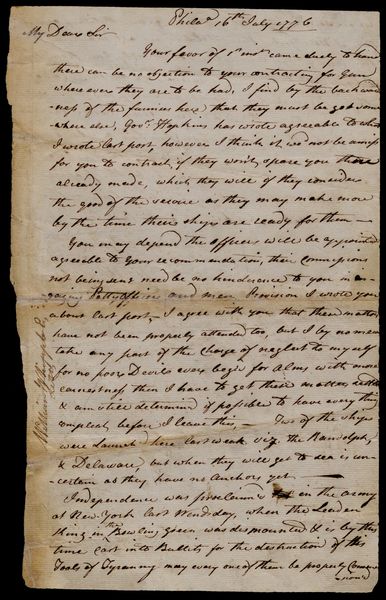 Philaᵃ 16th July 1776
My Dear Sir
Your favor of 1st inst. came duly to hand
there can be no objection to your contracting for Guns
wherever they are to be had, I find by the backward-
ness of the furnices here that they must be got some
where else, Govr. Hopkins has wrote agreeable to what
I wrote last post, however I think it wd not be amiss
for you to contract if they won't spare you those
already made, which they will if they consider
the good of the service as they may make more
by the time their ships are ready for them—
You may depend the officers will be appointed
agreeable to your recommendation, their commissions
not being sent need be no hinderance to you in en-
gaging Petty officers and men, Provision I wrote you
about last post, I agree with you that these matters
have not been properly attended too, but I by no means
take any part of the charge of neglect to myself
for no poor Devil ever begd for Alms with more
earnestness than I have to get these matters settled
& am still determin'd if possible to have every thing
compleat before I leave this, — Two of the ships
were Launch'd here last week viz. the Randolph,
& Delaware, but when they will get to sea is un-
certain as they have no Anchors yet—
Independence was proclaim'd in the army
at New York last Wednsday, when the Leaden
King in the Bowling green was dismounted & is by this
time cast into Bullets for the destruction of his
Tools of Tyranny may every one of them be properly Comm-